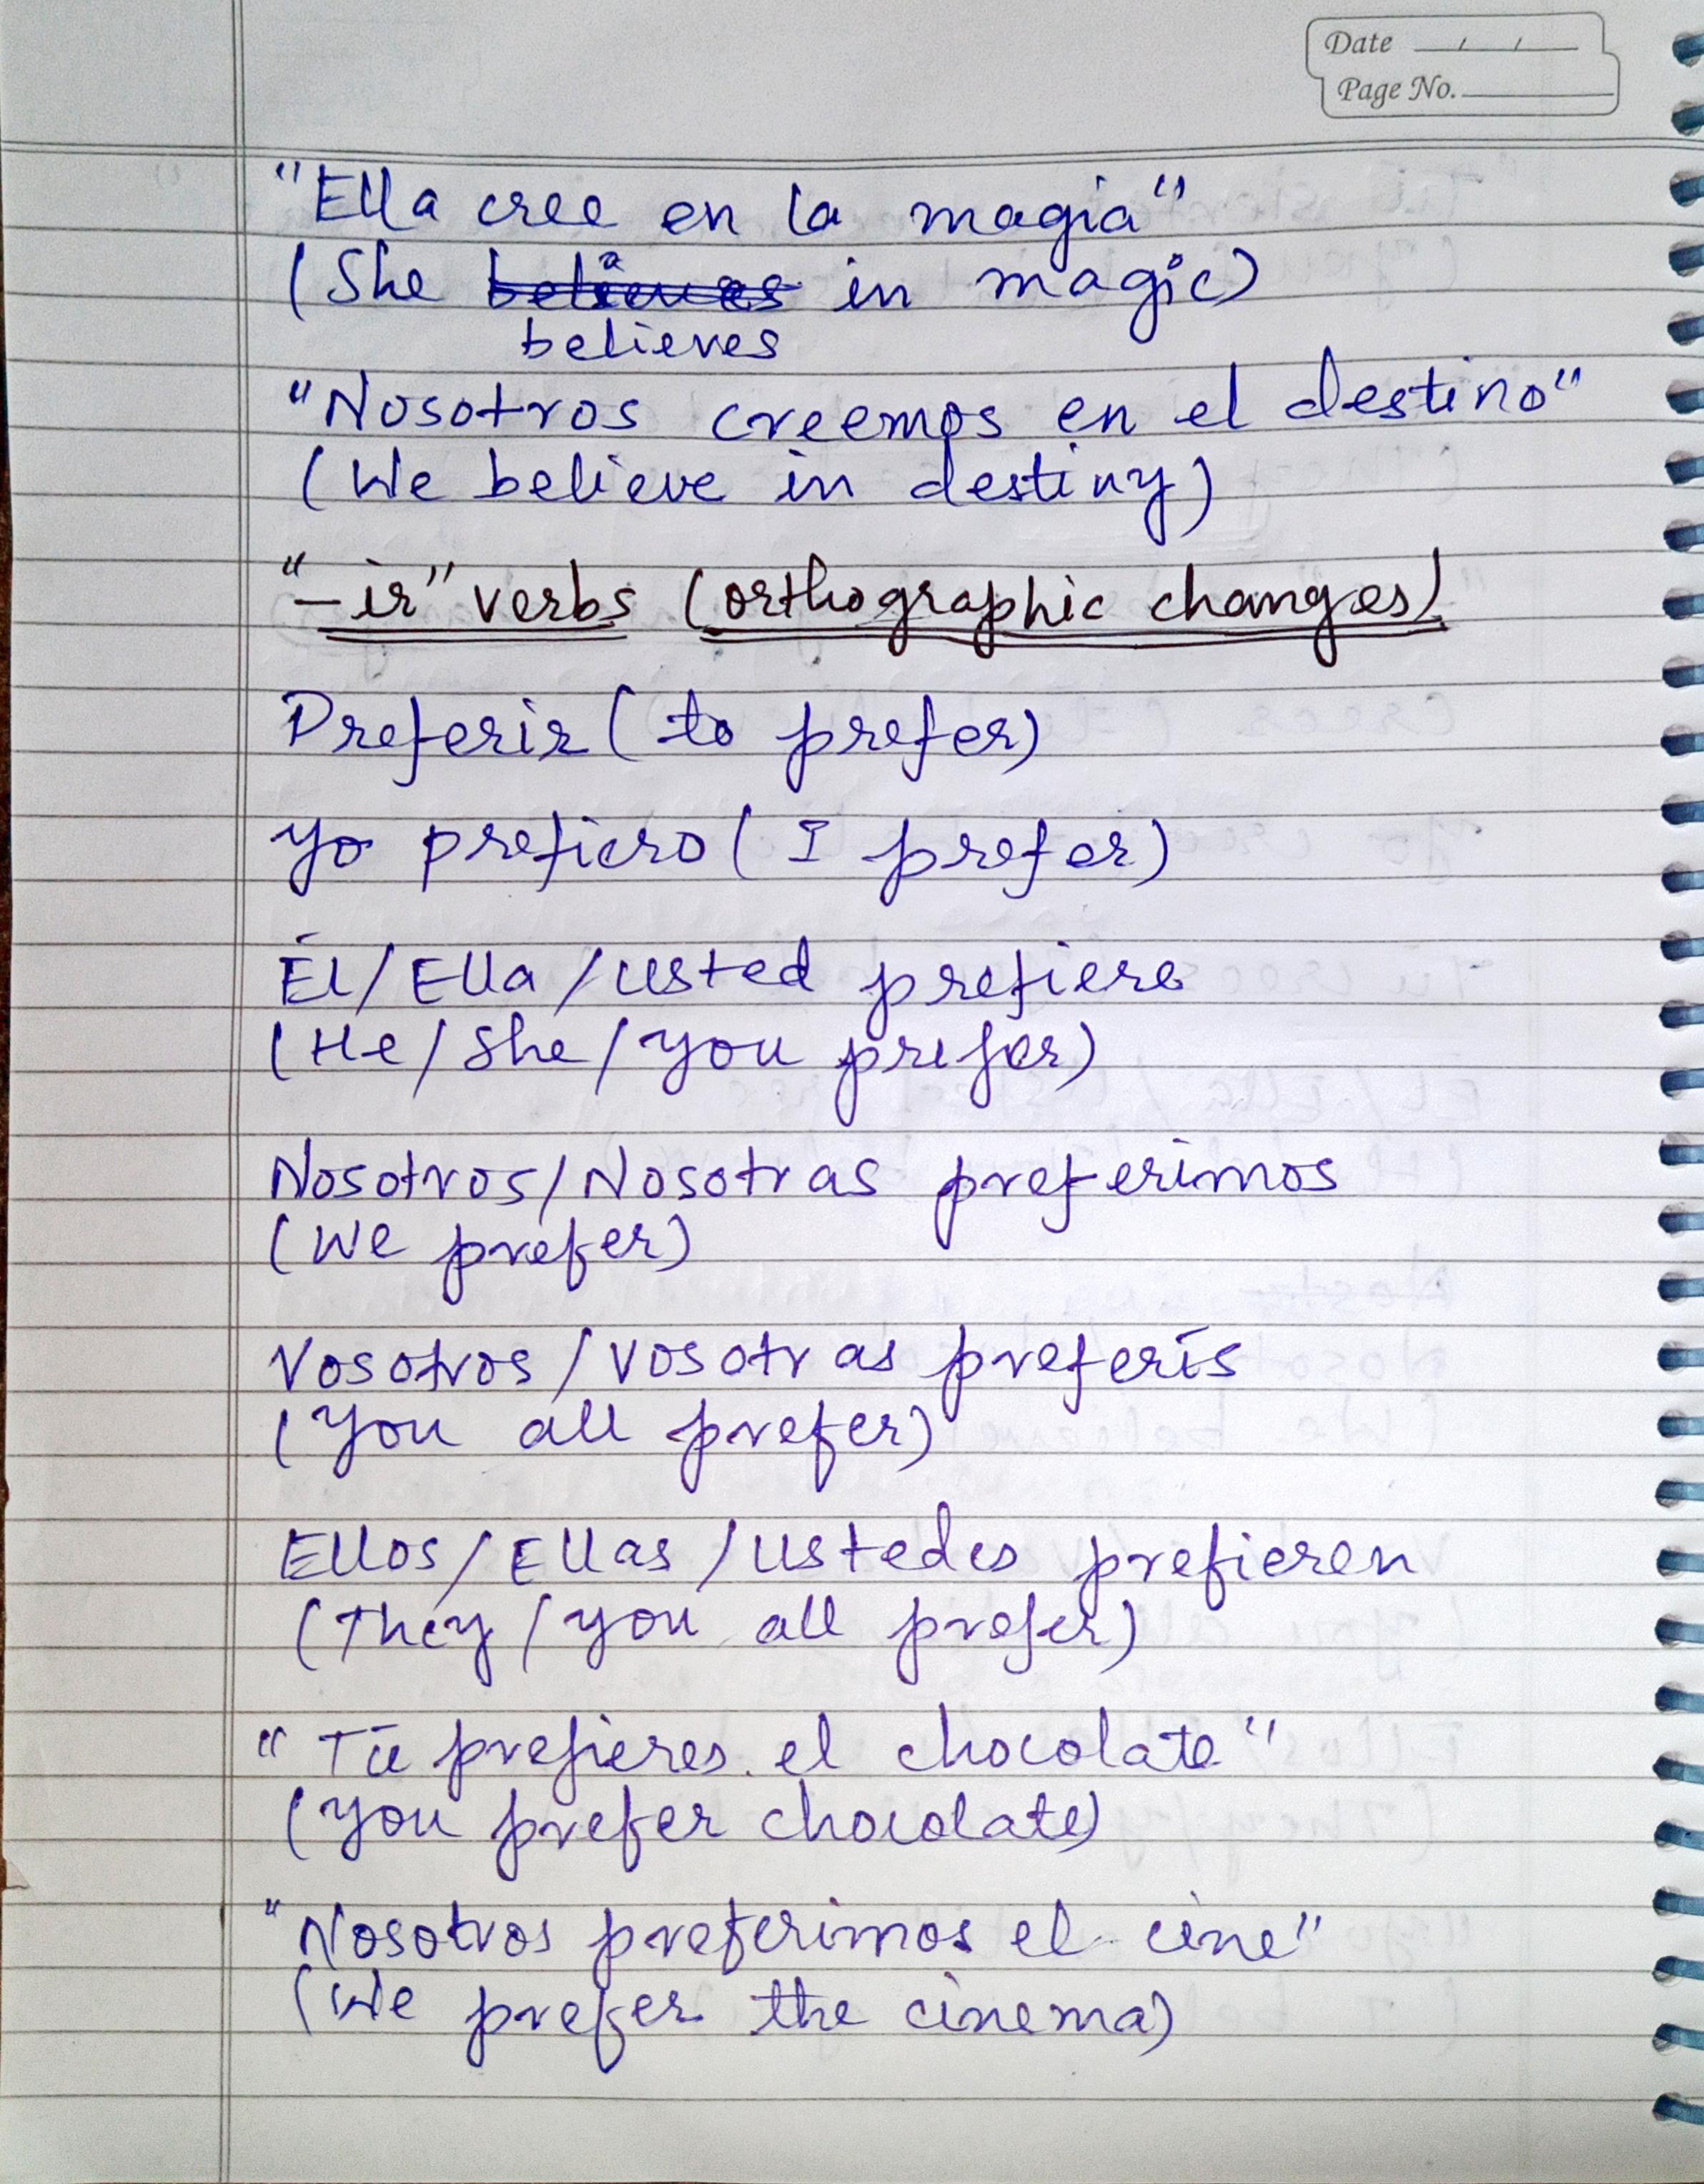 Date / /
Page No.
"Ella cree en la magia"
(She in magic)
believes
"Nosotros creemos en el destino"
(We believe in destiny)
"-ir" verbs (orthographic changes)
Preferir (to prefer)
Yo prefiero (I prefer)
Él/Ella/Usted prefiere
(He/She/You prefer)
Nosotros/Nosotras preferimos
(We prefer)
Vosotros/Vosotras preferís
(You all prefer)
Ellos/Ellas/Ustedes prefieren
(They/You all prefer)
"Tú prefieres el chocolate"
(You prefer chocolate)
"Nosotros preferimos el cine"
(We prefer the cinema)